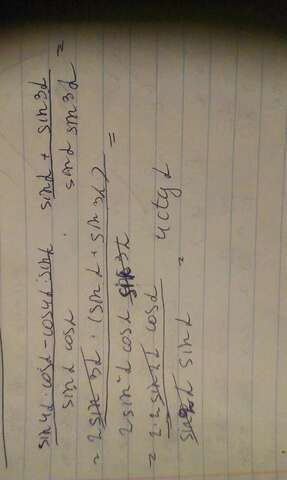 sin4α·cosα-cos4α·sinα / sinα cosα · sinα + sin3α / sinα sin3α =
= 2sin3α·(sinα+sin3α) / 2sin²α cosα sin3α =
= 2·2sin2α cosα / sin2α sinα = 4ctgα